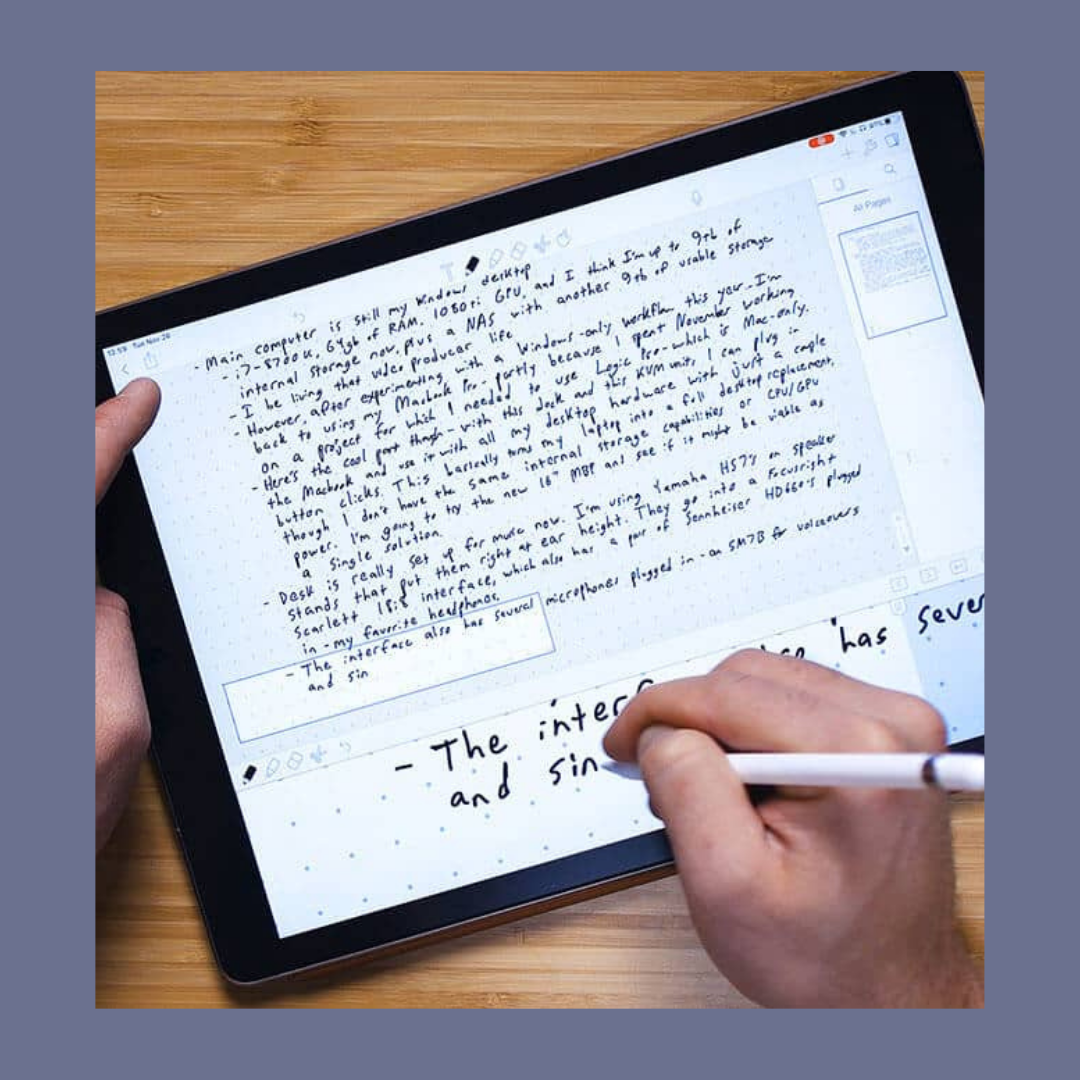 12:59 Tue Nov 26
All Pages
- Main computer is still my Windows desktop
- i7-8700K, 64gb of RAM, 1080ti GPU, and I think I'm up to 9tb of
internal storage now, plus a NAS with another 9tb of usable storage
- I be living that video producer life
- However, after experimenting with a Windows-only workflow this year - I'm
back to using my Macbook Pro - partly because I spent November working
on a project for which I needed to use Logic Pro - which is Mac-only.
- Here's the cool part though - with this dock and this KVM unit, I can plug in
the Macbook and use it with all my desktop hardware with just a couple
button clicks. This basically turns my laptop into a full desktop replacement,
though I don't have the same internal storage capabilities or CPU/GPU
power. I'm going to try the new 16" MBP and see if it might be viable as
a single solution.
- Desk is really set up for music now. I'm using Yamaha HS7's on speaker
stands that put them right at ear height. They go into a Focusright
Scarlett 18i8 interface, which also has a pair of Sennheiser HD660's plugged
in - my favorite headphones.
- The interface also has several microphones plugged in - an SM7B for voiceovers
and sin
- The interf has sever
and sin